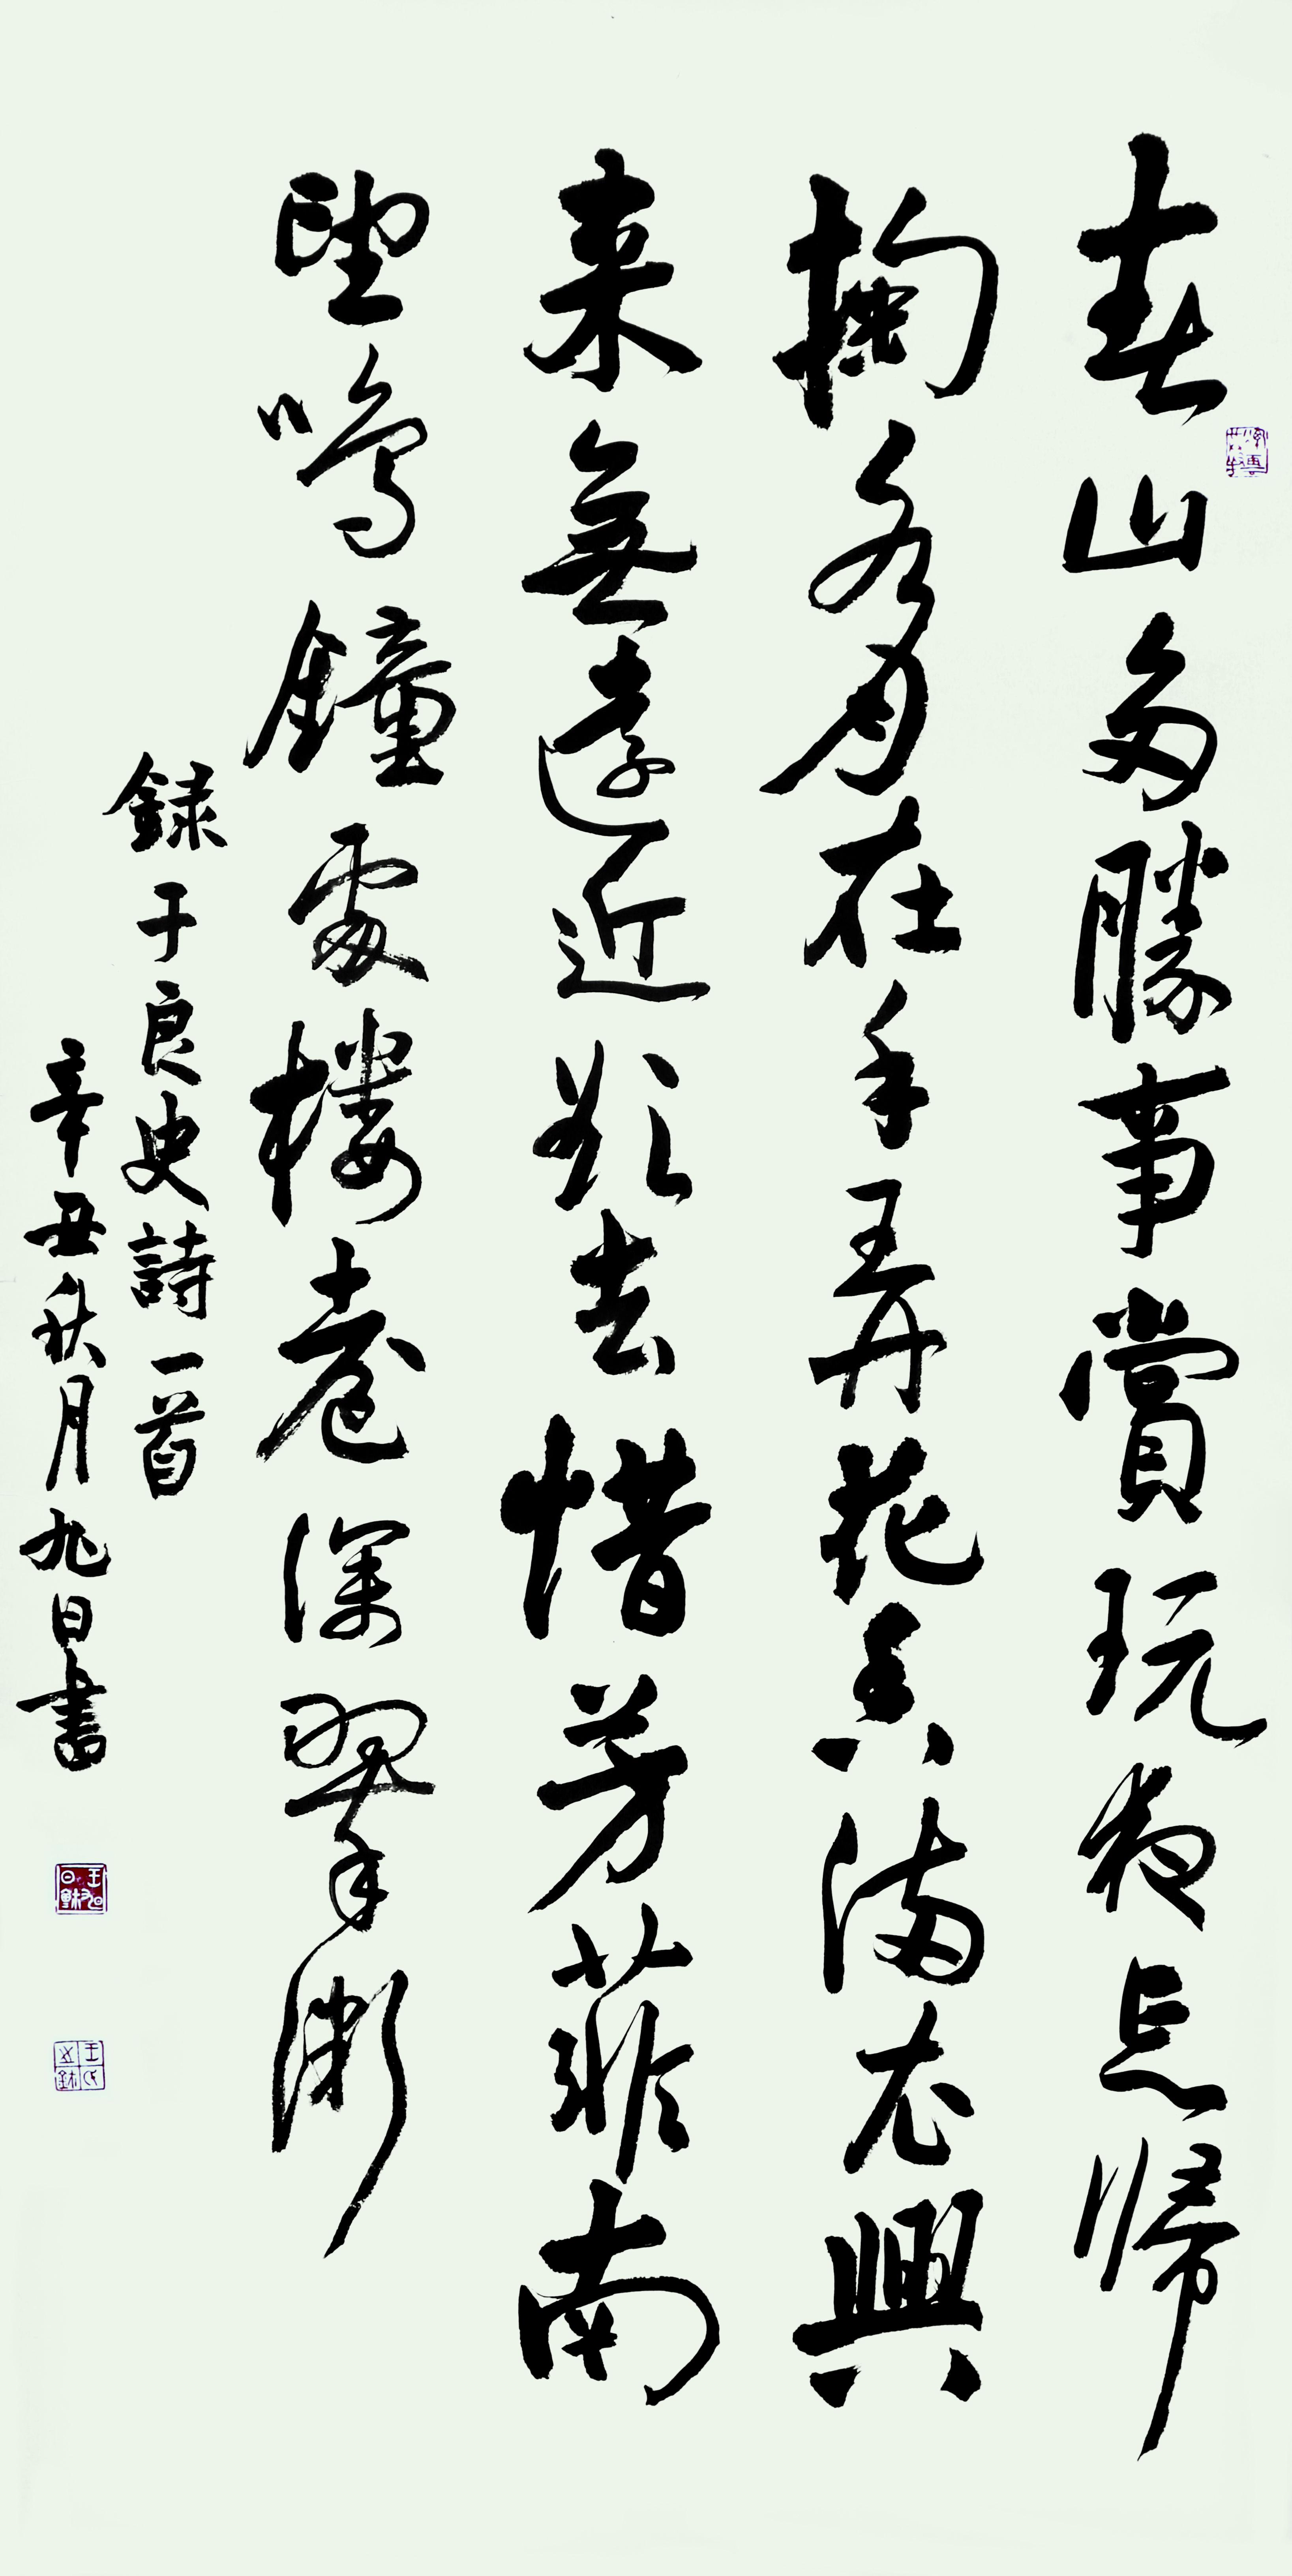 春山多勝事賞玩夜忘歸
掬水月在手弄花香滿衣興
来無遠近欲去惜芳菲南
望鳴鐘處樓臺深翠微
録于良史詩一首
辛丑秋月旭日書